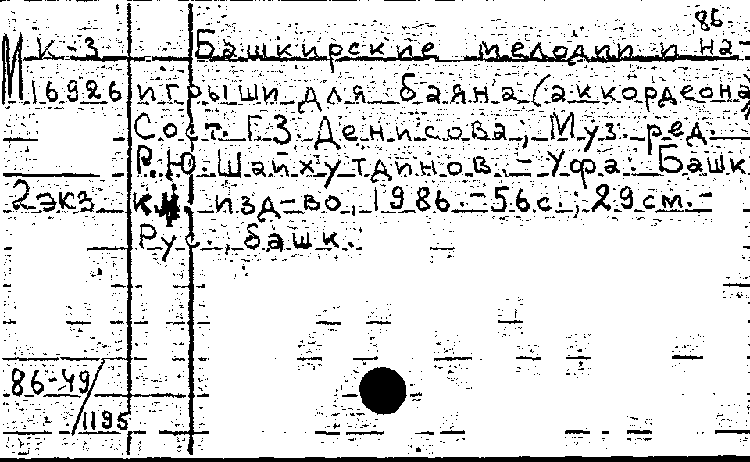 86
К-3 Башкирские мелодии и на-
М 16926 игрыши для баяна (аккордеона)
Сост. Г.З. Денисова; Муз. ред.
Р.Ю. Шайхутдинов. - Уфа: Башк
2 экз. кн. изд-во, 1986. - 56с.; 29см. -
Рус., башк.
86-49/1195